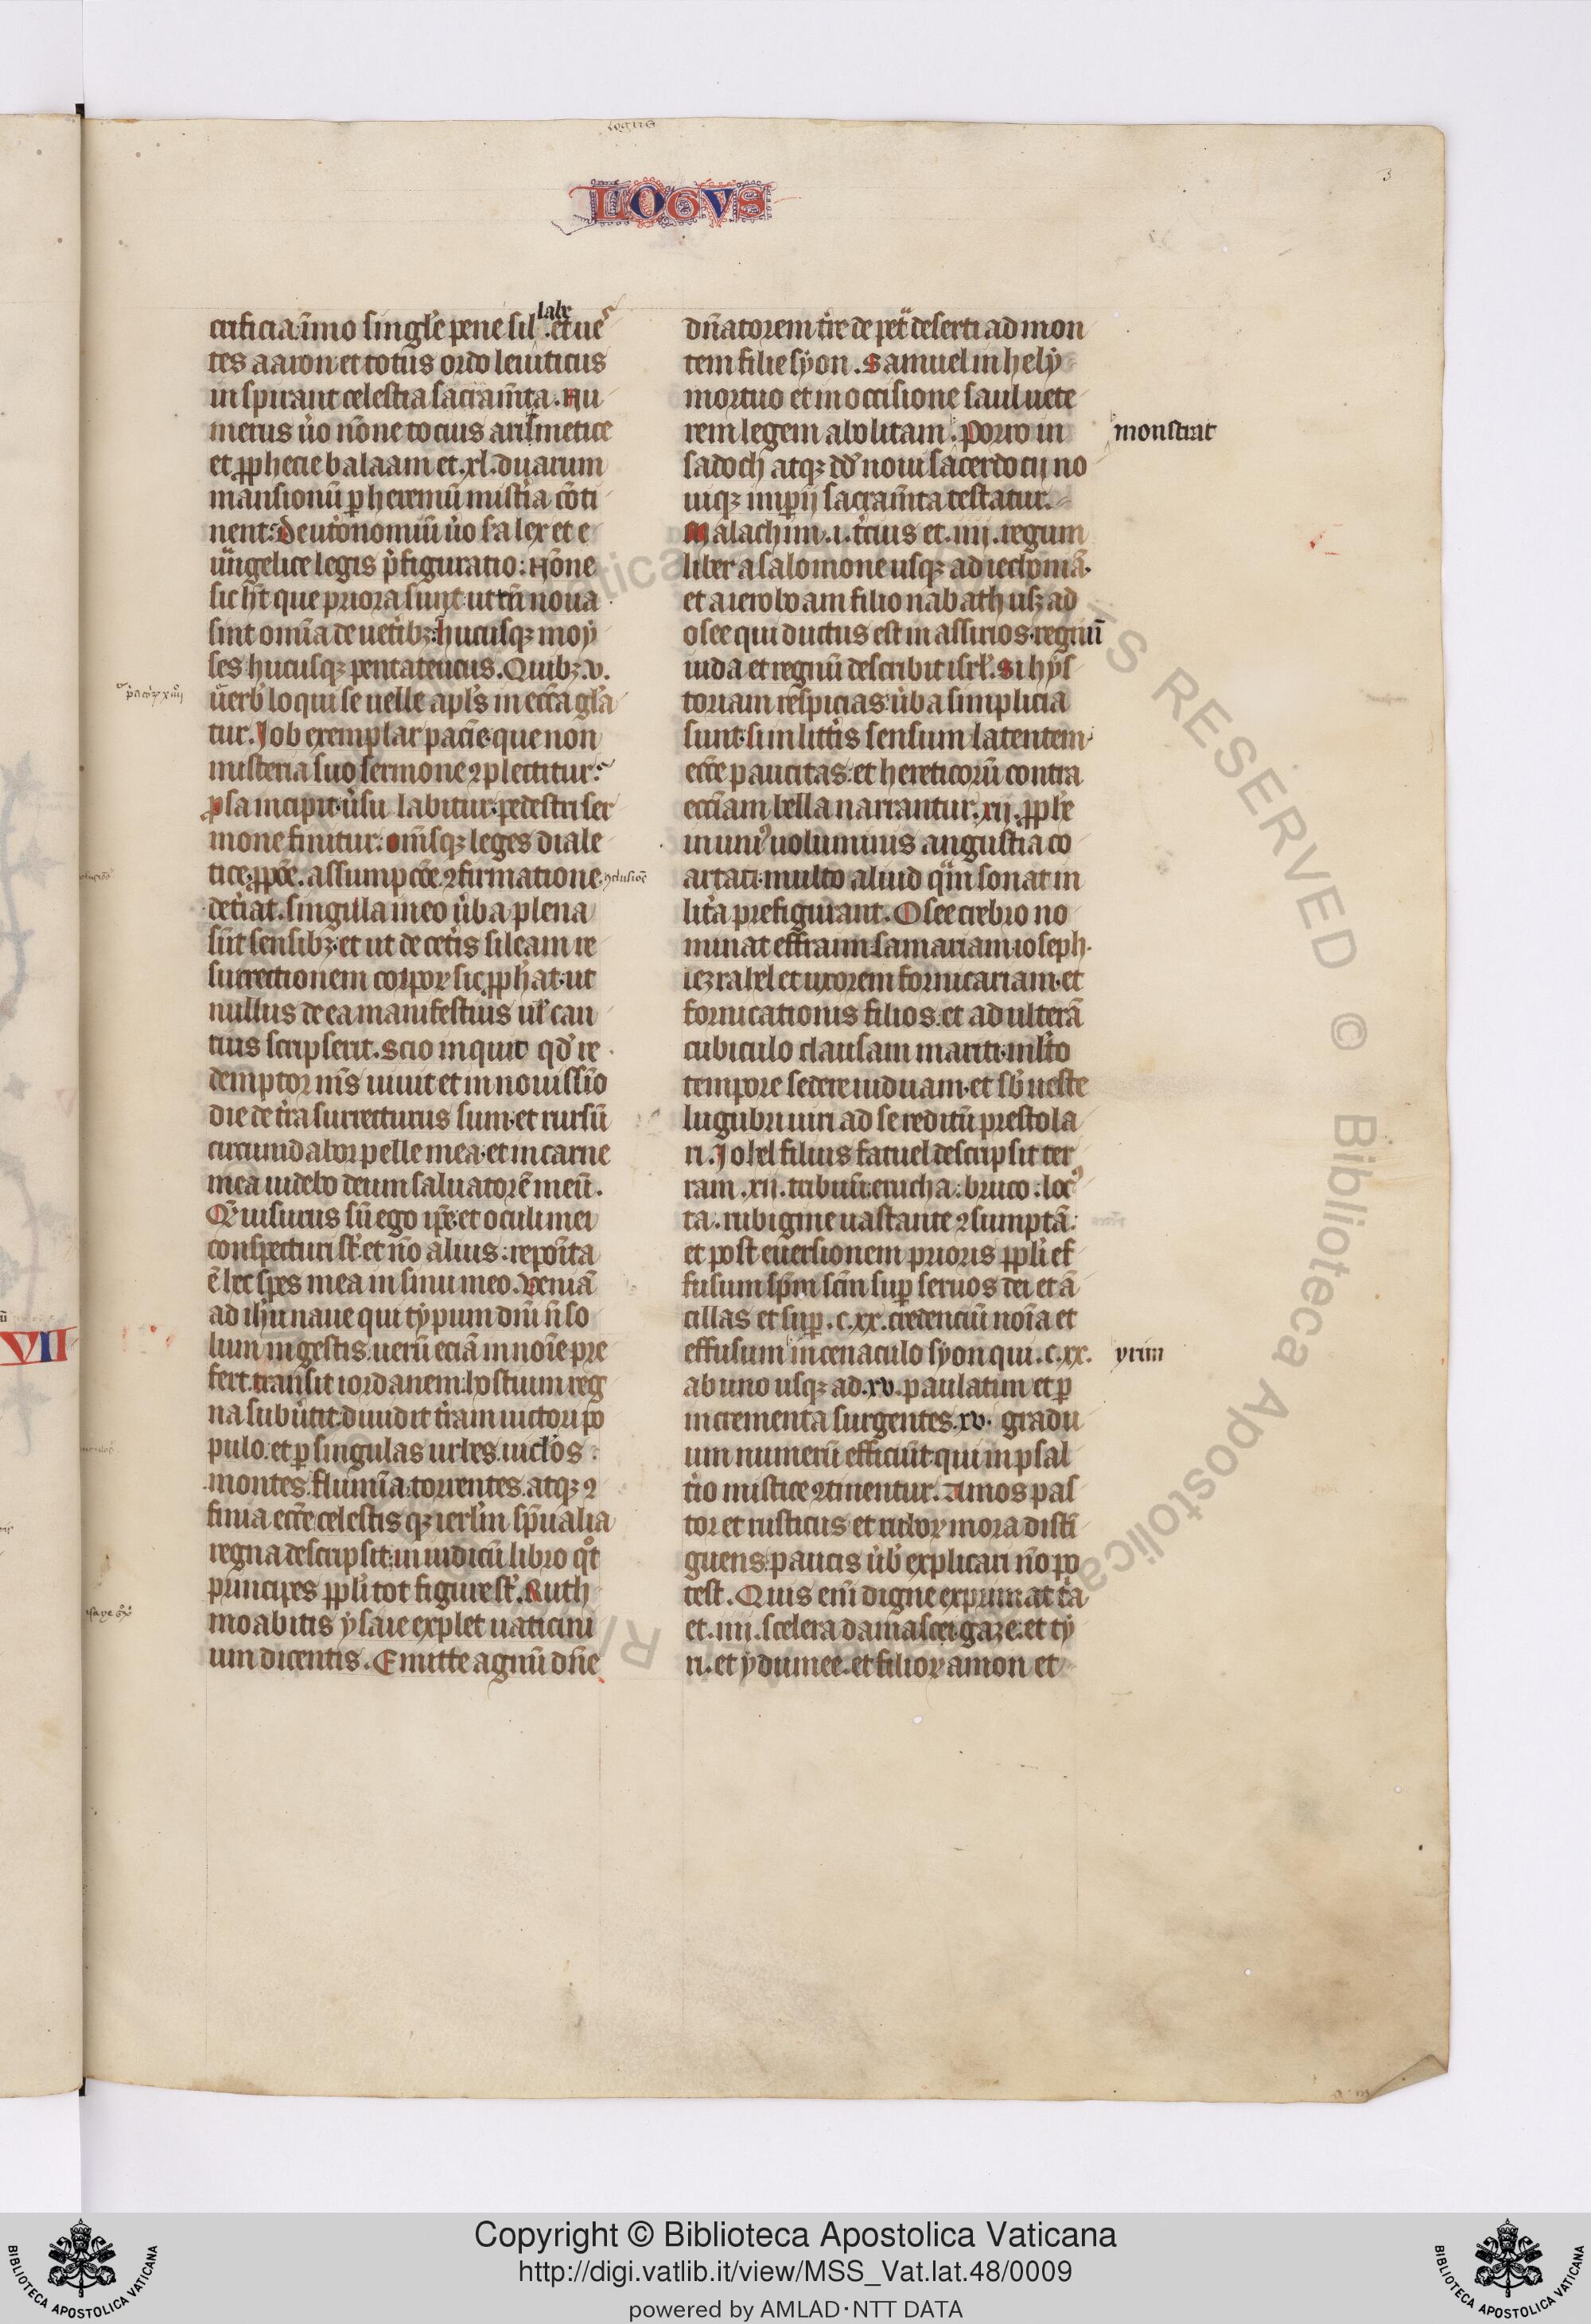 LOGVS
3
crificia: īmo singl'e pene sil'labe. et ues
tes aaron et totus ordo leuiticus
in spirant celestia sacram̄ta. Nu
merus u̾o nōne tocius arismetice
et ꝓphecie balaam et .xl. duarum
mansionū p̱ heremū mist̾ia cōti
nent: Deut̾onomiū u̾o sa lex et e
uāngelice legis p̾figuratio: Nōne
sic hn̄t que priora sunt: ut tn̄ noua
sint om̄ia de uet̾ibꝫ: hucusqꝫ moẏ
ses hucusqꝫ pentateucus. Quibꝫ .v.
uerb' loqui se uelle apl's in ecc̄a gl'a
tur. Job exemplar pacīe: que non
misteria suo sermone ꝯplectitur:
ꝓsa incipit: u̾su labitur: pedestri ser
mone finitur: om̄sqꝫ leges diale
tice. ꝓpōe. assumpcōe. ꝯfirmatione. ꝯclusiōe
det̾iat. singula in eo u̾ba plena
sūt sensibꝫ: et ut de cet̾is sileam re
surrectionem corpoꝝ sic ꝓph̾at: ut
nullus de ea manifestius ul' cau
tius scripserit. Scio inquit qd̾ re
demptor m̄s uiuit et in nouissīo
die de t̾ra surrecturus sum: et rursū
circundabor pelle mea: et in carne
mea uidebo deum saluatorē meū.
Que̾ uisurus sū ego ip̄e: et oculi mei
conspecturi st̾: et nō alius: repoīta
ē hec spes mea in sinu meo. Veniā
ad ih̄m naue qui tẏpum dn̄i n̄ so
lum in gestis: uerū eciā in noīe pre
fert. transit iordanem: hostium reg
na subu̾tit: diuidit t̾ram uictori po
pulo. et p̱ singulas urbes. uiclōs.
montes. flumīa. torrentes. atqꝫ ꝯ
finia ecc̄e celestis qꝫ ierl'm sp̄ualia
regna descripsit: in iudicū libro qt̊
principes ppl'i tot figure st̾. Ruth
moabitis ẏsaie explet uaticini
um dicentis. Emitte agnū dn̄e
dn̄atorem t̾re de pet̾ deserti ad mon
tem filie sẏon. Samuel in helẏ
mortuo et in occisione saul uete
rem legem abolitam. Porro in
monstrat
sadoch atqꝫ dd̾ noui sacerdocij no
uiqꝫ imp̱ij sacram̄ta testatur.
Malachim .i. t̾cius et .iiij. regum
liber a salomone usqꝫ ad iechoniā.
et a ieroboam filio nabath usqꝫ ad
osee qui ductus est in assirios: regnū
iuda et regnū describit isrl'. Si hẏs
toriam respicias: u̾ba simplicia
sunt: si in litt̾is sensum latentem:
ecc̄e paucitas: et hereticorū contra
ecc̄iam bella narrantur. xij. ꝓph'e
in uni̾ uoluminis angustia co
artati: multo aliud qām sonat in
lit̾a prefigurant. Osee crebro no
minat effraim: samariam: ioseph.
iezrahel et uxorem fornicariam: et
fornicationis filios. et ad ulterā
cubiculo clausam mariti: ml'to
tempore sedere uiduam: et sb̾ ueste
lugubri uiri ad se reditū prestola
ri. Johel filius fatuel descripsit ter
ram .xii. tribuū: erucha: bruco: locus
ta. rubigine uastante ꝯsumptā:
et post euersionem prioris ppl'i ef
fusum sp̄m sc̄m sup̱ seruos dei et ā
cillas et sup̱ .c.xx. credenciū noīa et
effusum in cenaculo sẏon qui .c.xx.
ab uno usqꝫ ad .xv. paulatim et p̱
incrementa surgentes .xv. gradu
um numerū efficiūt: qui in psal
t̾io mistice ꝯtinentur. Amos pas
tor et rusticus et ruboꝝ mora disti
guens: paucis u̾b' explicari nō po
test. Quis enī digne exprimat t̾a
et .iiij. scelera damasci: gaze. et tẏ
ri. et ẏdumee. et filioꝝ amon et
Copyright © Biblioteca Apostolica Vaticana
http://digi.vatlib.it/view/MSS_Vat.lat.48/0009
powered by AMLAD·NTT DATA